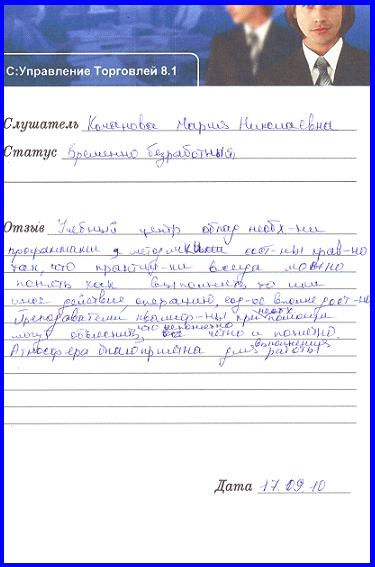 С:Управление Торговлей 8.1
Слушатель Кочанова Мария Николаевна
Статус Временно безработный
Отзыв Учебный центр облад необх-ми
программами и методиками сост-ны прав-но
так, что практич-ки всегда можно
понять как выполнить то или
иное действие, операцию,
Преподаватели квалифиц-ны необх. при помощи
могут объяснить, что непонятно все чётко и понятно.
Атмосфера благоприятна для выполнения работы
Дата 17.09.10